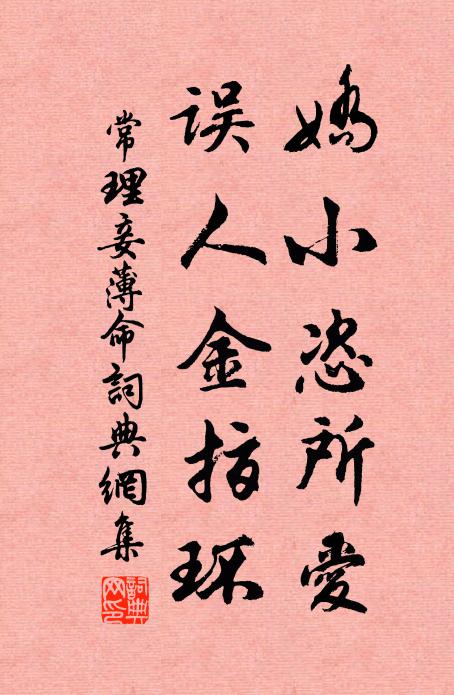 娇小恣所爱
误人金指环
常理妾薄命詞典網集
詞典网印